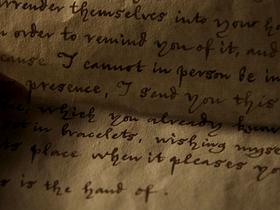 surrender themselves into your ha
n order to remind you of it, and
cause I cannot in person be in
presence, I send you this
which you already know
in bracelets, wishing myse
ts place when it pleases yo
s is the hand of